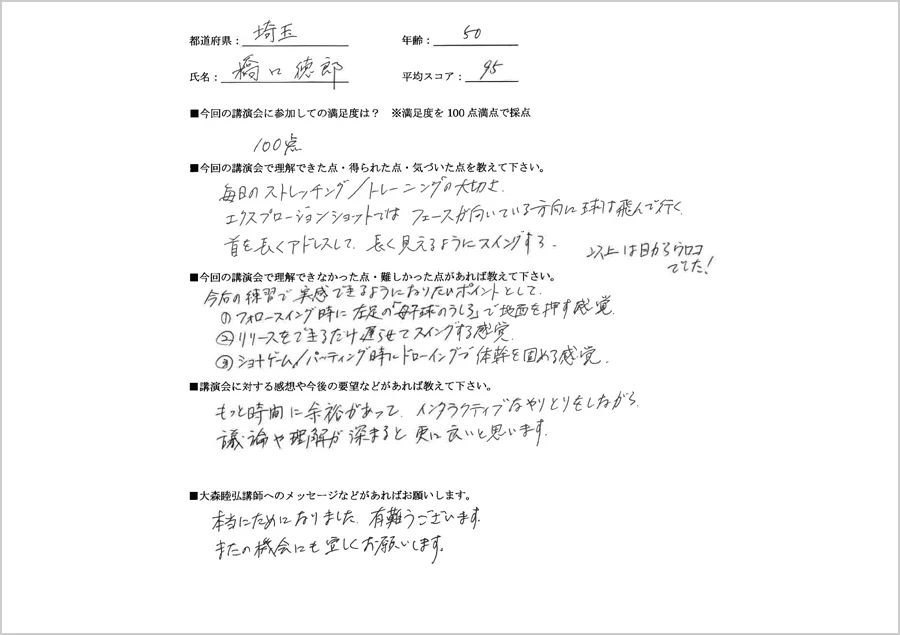 都道府県： 埼玉 年齢： 50
氏名： 橋口 徳郎 平均スコア： 95
■今回の講演会に参加しての満足度は？ ※満足度を100点満点で採点
100点
■今回の講演会で理解できた点・得られた点・気づいた点を教えて下さい。
毎日のストレッチング／トレーニングの大切さ、
エクスプロージョンショットでは フェースが向いている方向に球は飛んで行く、
首を長くアドレスして、長く見えるようにスイングする。
以上は目からウロコ
でした！
■今回の講演会で理解できなかった点・難しかった点があれば教えて下さい。
今后の練習で実感できるようになりたいポイントとして、
① フォロースイング時に左足の「母子球のうしろ」で地面を押す感覚、
② リリースをできるだけ遅らせてスイングする感覚、
③ ショートゲーム／パッティング時にドローイングで体幹を固める感覚、
■講演会に対する感想や今後の要望などがあれば教えて下さい。
もっと時間に余裕があって、インタラクティブなやりとりをしながら、
議論や理解が深まると更に良いと思います。
■大森睦弘講師へのメッセージなどがあればお願いします。
本当にためになりました。有難うございます。
またの機会にも宜しくお願いします。